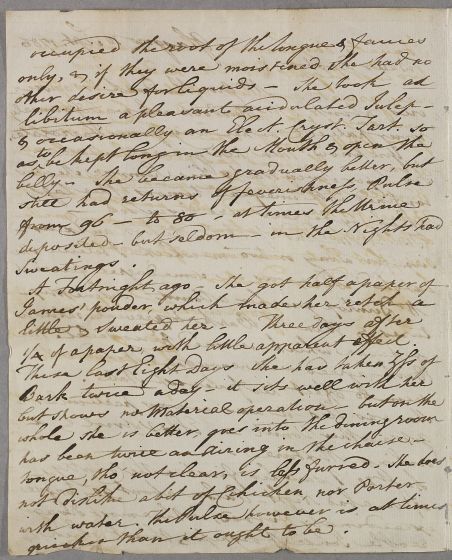 occupied the root of the tongue & fauces
only, & if they were moistened she had no
other desire for liquids — she took ad
libitum a pleasant acidulated Julep —
& occasionally an Elect. Cryst. Tart. so
as to be kept long in the Mouth & open the
belly — she became gradually better, but
still had returns of feverishness, Pulse
from 96 — to 80 — at times the Urine
deposited — but seldom — in the Nights had
Sweatings.
A Fortnight ago, she got half a paper of
James' powder, which made her retch a
little & sweated her — Three days after
1/4 of a paper with little apparent effect.
These last Eight Days she has taken ʒſs of
Bark twice a day — it sits well with her
but shows no Material operation — but on the
whole she is better, goes into the dining room
has been twice an airing in the chaise —
tongue, tho not clear, is less furred — She does
not dislike a bit of Chicken, nor Porter
with water. The Pulse however is at times
quicker than it ought to be.